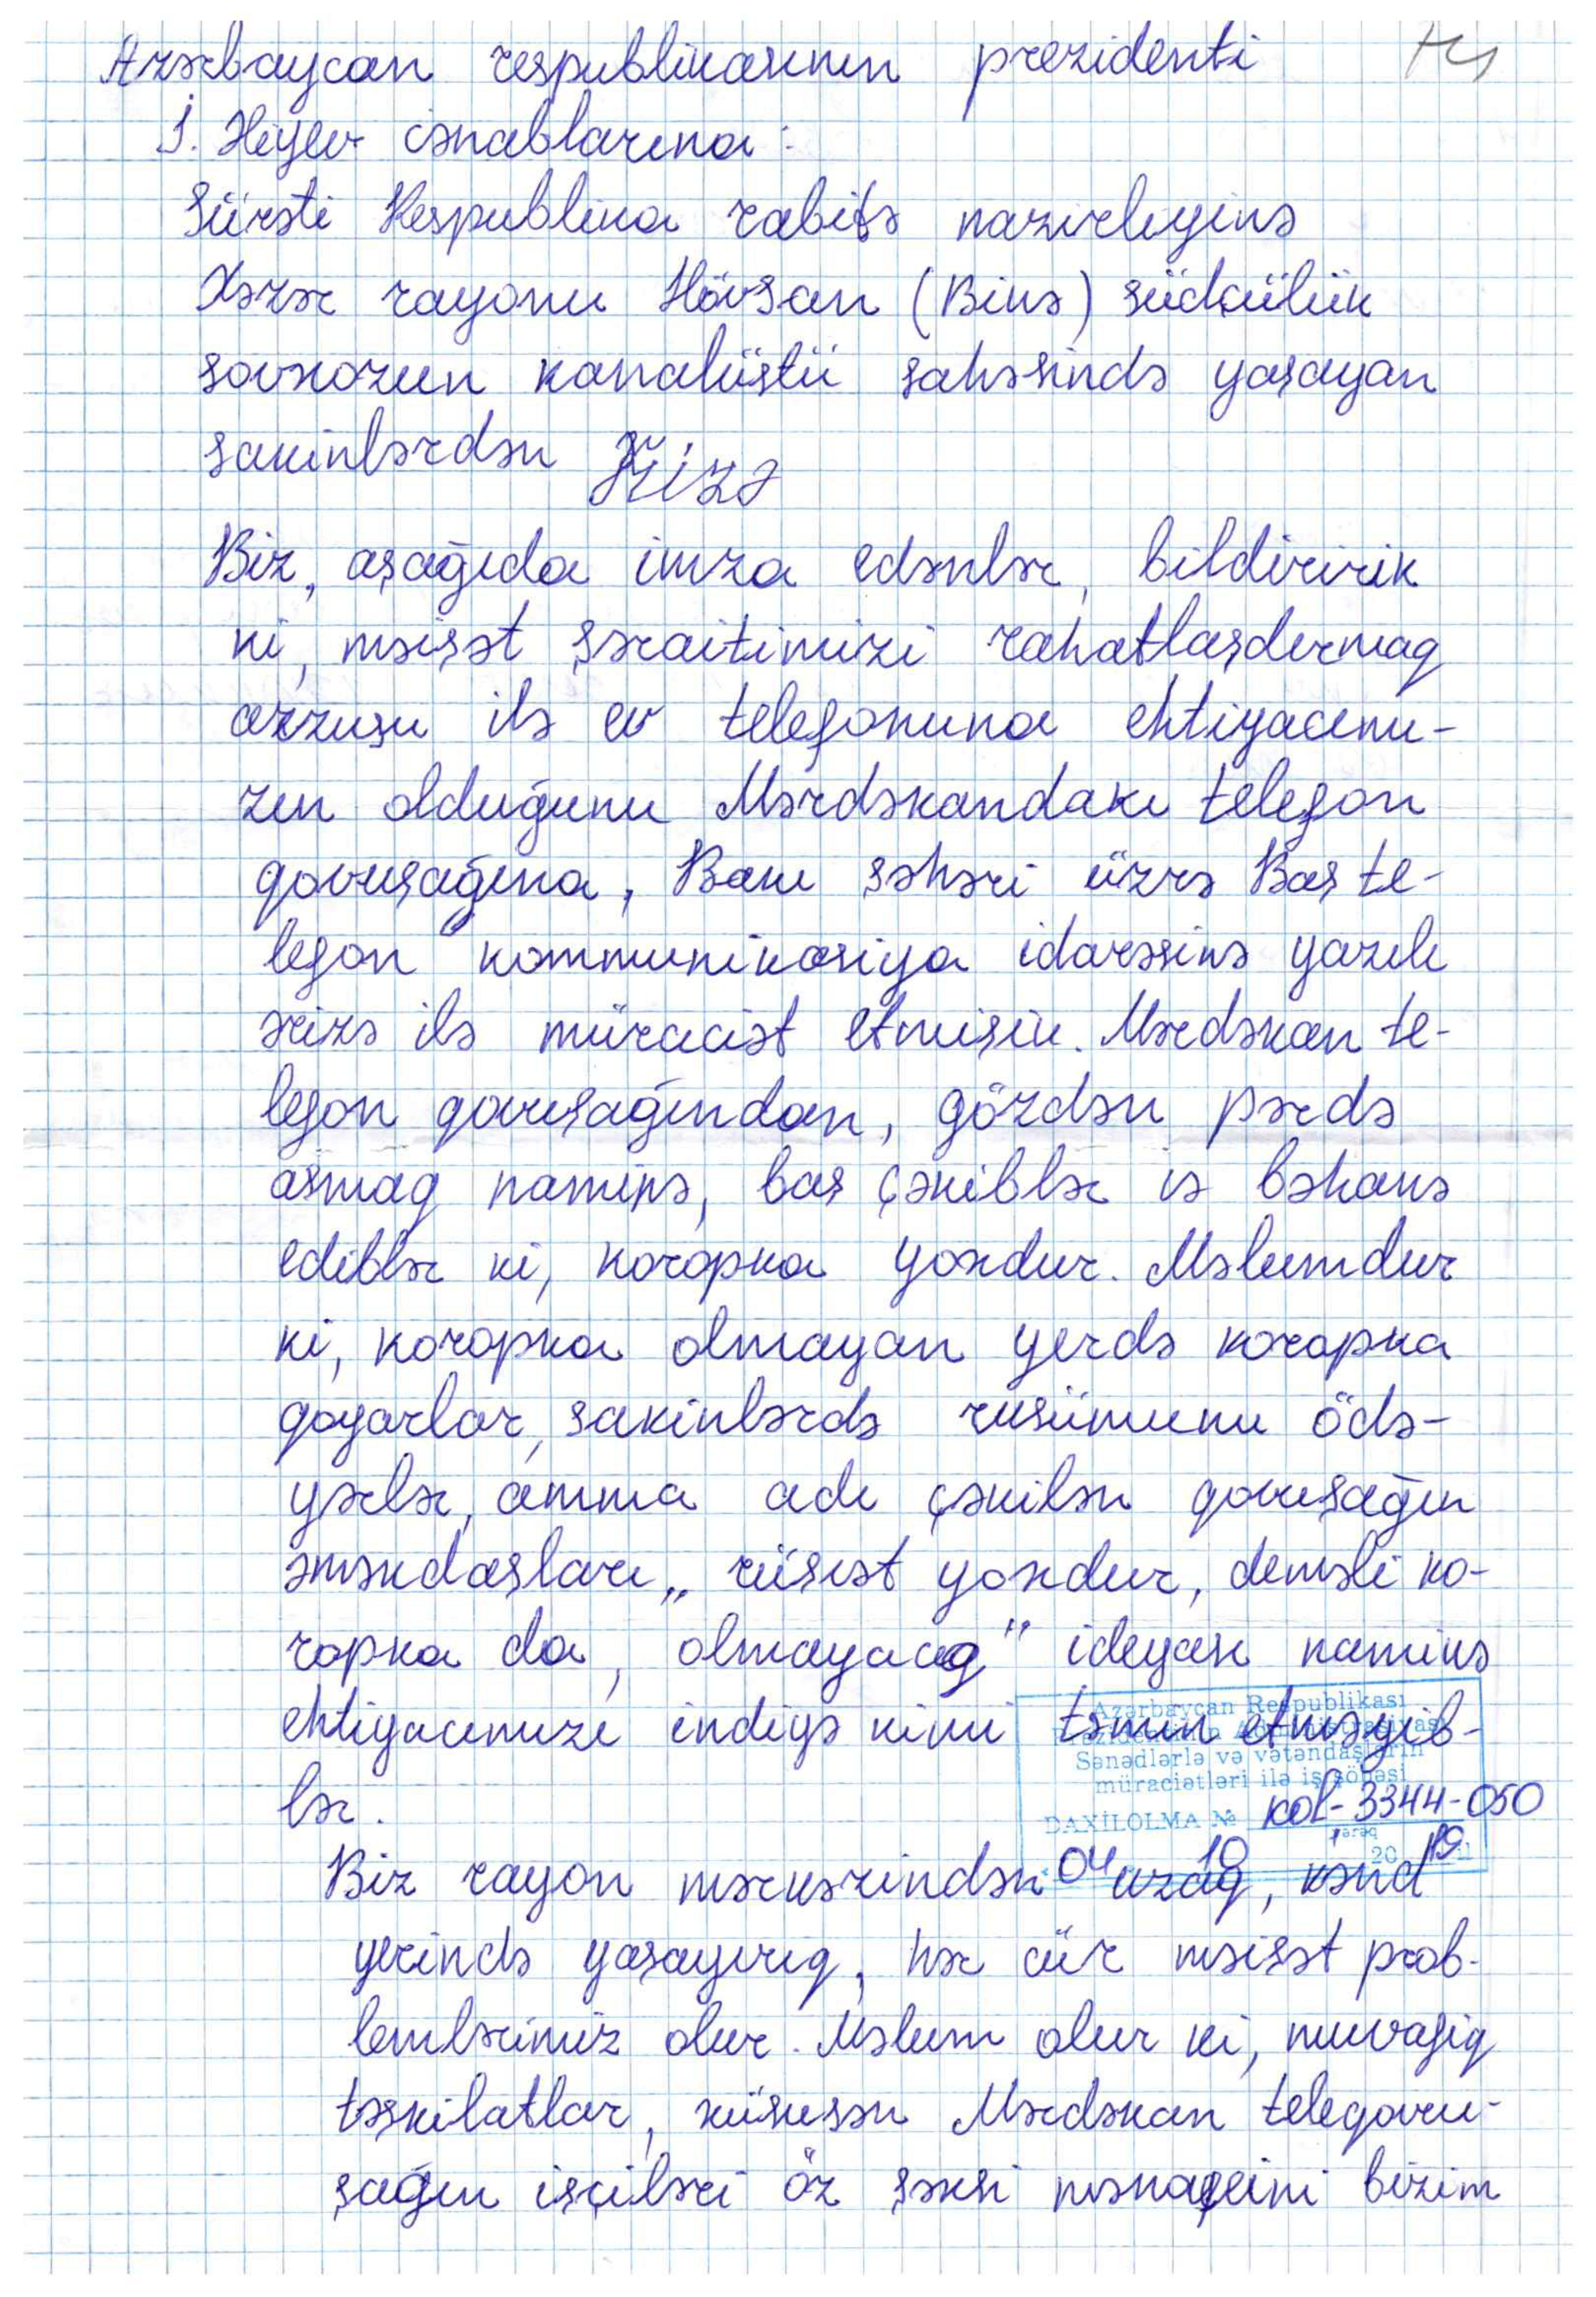 Azərbaycan respublikasının prezidenti
İ. Əliyev cənablarına:
Surəti Respublika rabitə nazirliyinə
Xəzər rayonu Hövsan (Binə) südçülük
sovxozun kanalüstü sahəsində yaşayan
sakinlərdən
Ərizə
Biz, aşağıda imza edənlər, bildiririk
ki, məişət şəraitimizi rahatlaşdırmaq
arzusu ilə ev telefonuna ehtiyacımı-
zın olduğunu Mərdəkandakı telefon
qovuşağına, Bakı şəhəri üzrə Baş te-
lefon kommunikasiya idarəsinə yazılı
ərizə ilə müraciət etmişik. Mərdəkan te-
lefon qovuşağından, gözdən pərdə
asmaq naminə, baş çəkiblər və bəhanə
ediblər ki, koropka yoxdur. Məlumdur
ki, koropka olmayan yerdə koropka
qoyarlar, sakinlərdə rüsumunu ödə-
yərlər, amma adı çəkilən qovuşağın
əməkdaşları „rüşvət yoxdur, deməli ko-
ropka da, olmayacaq" ideyası naminə
ehtiyacımızı indiyə kimi təmin etməyib-
lər.
Azərbaycan Respublikası
Prezidentinin Administrasiyası
Sənədlərlə və vətəndaşların
müraciətləri ilə iş şöbəsi
DAXİLOLMA № kol-3344-050
vərəq
04 10 2019 il
Biz rayon mərkəzindən uzaq, kənd
yerində yaşayırıq, hər cür məişət prob-
lemlərimiz olur. Məlum olur ki, muvafiq
təşkilatlar, xüsusən Mərdəkan teleqovu-
şağın işçiləri öz şəxsi mənafeini bizim